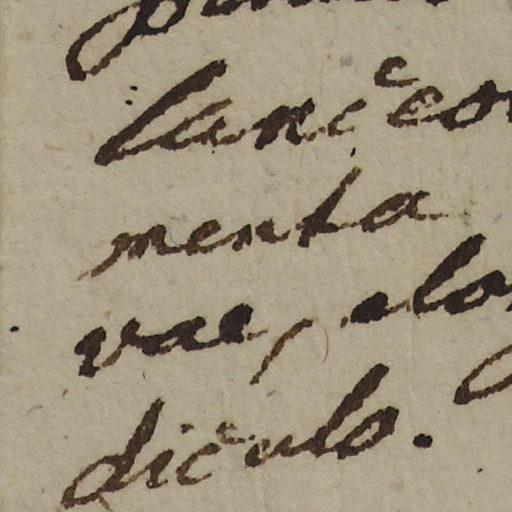 lanceo
menta
vae, elo
diculo.